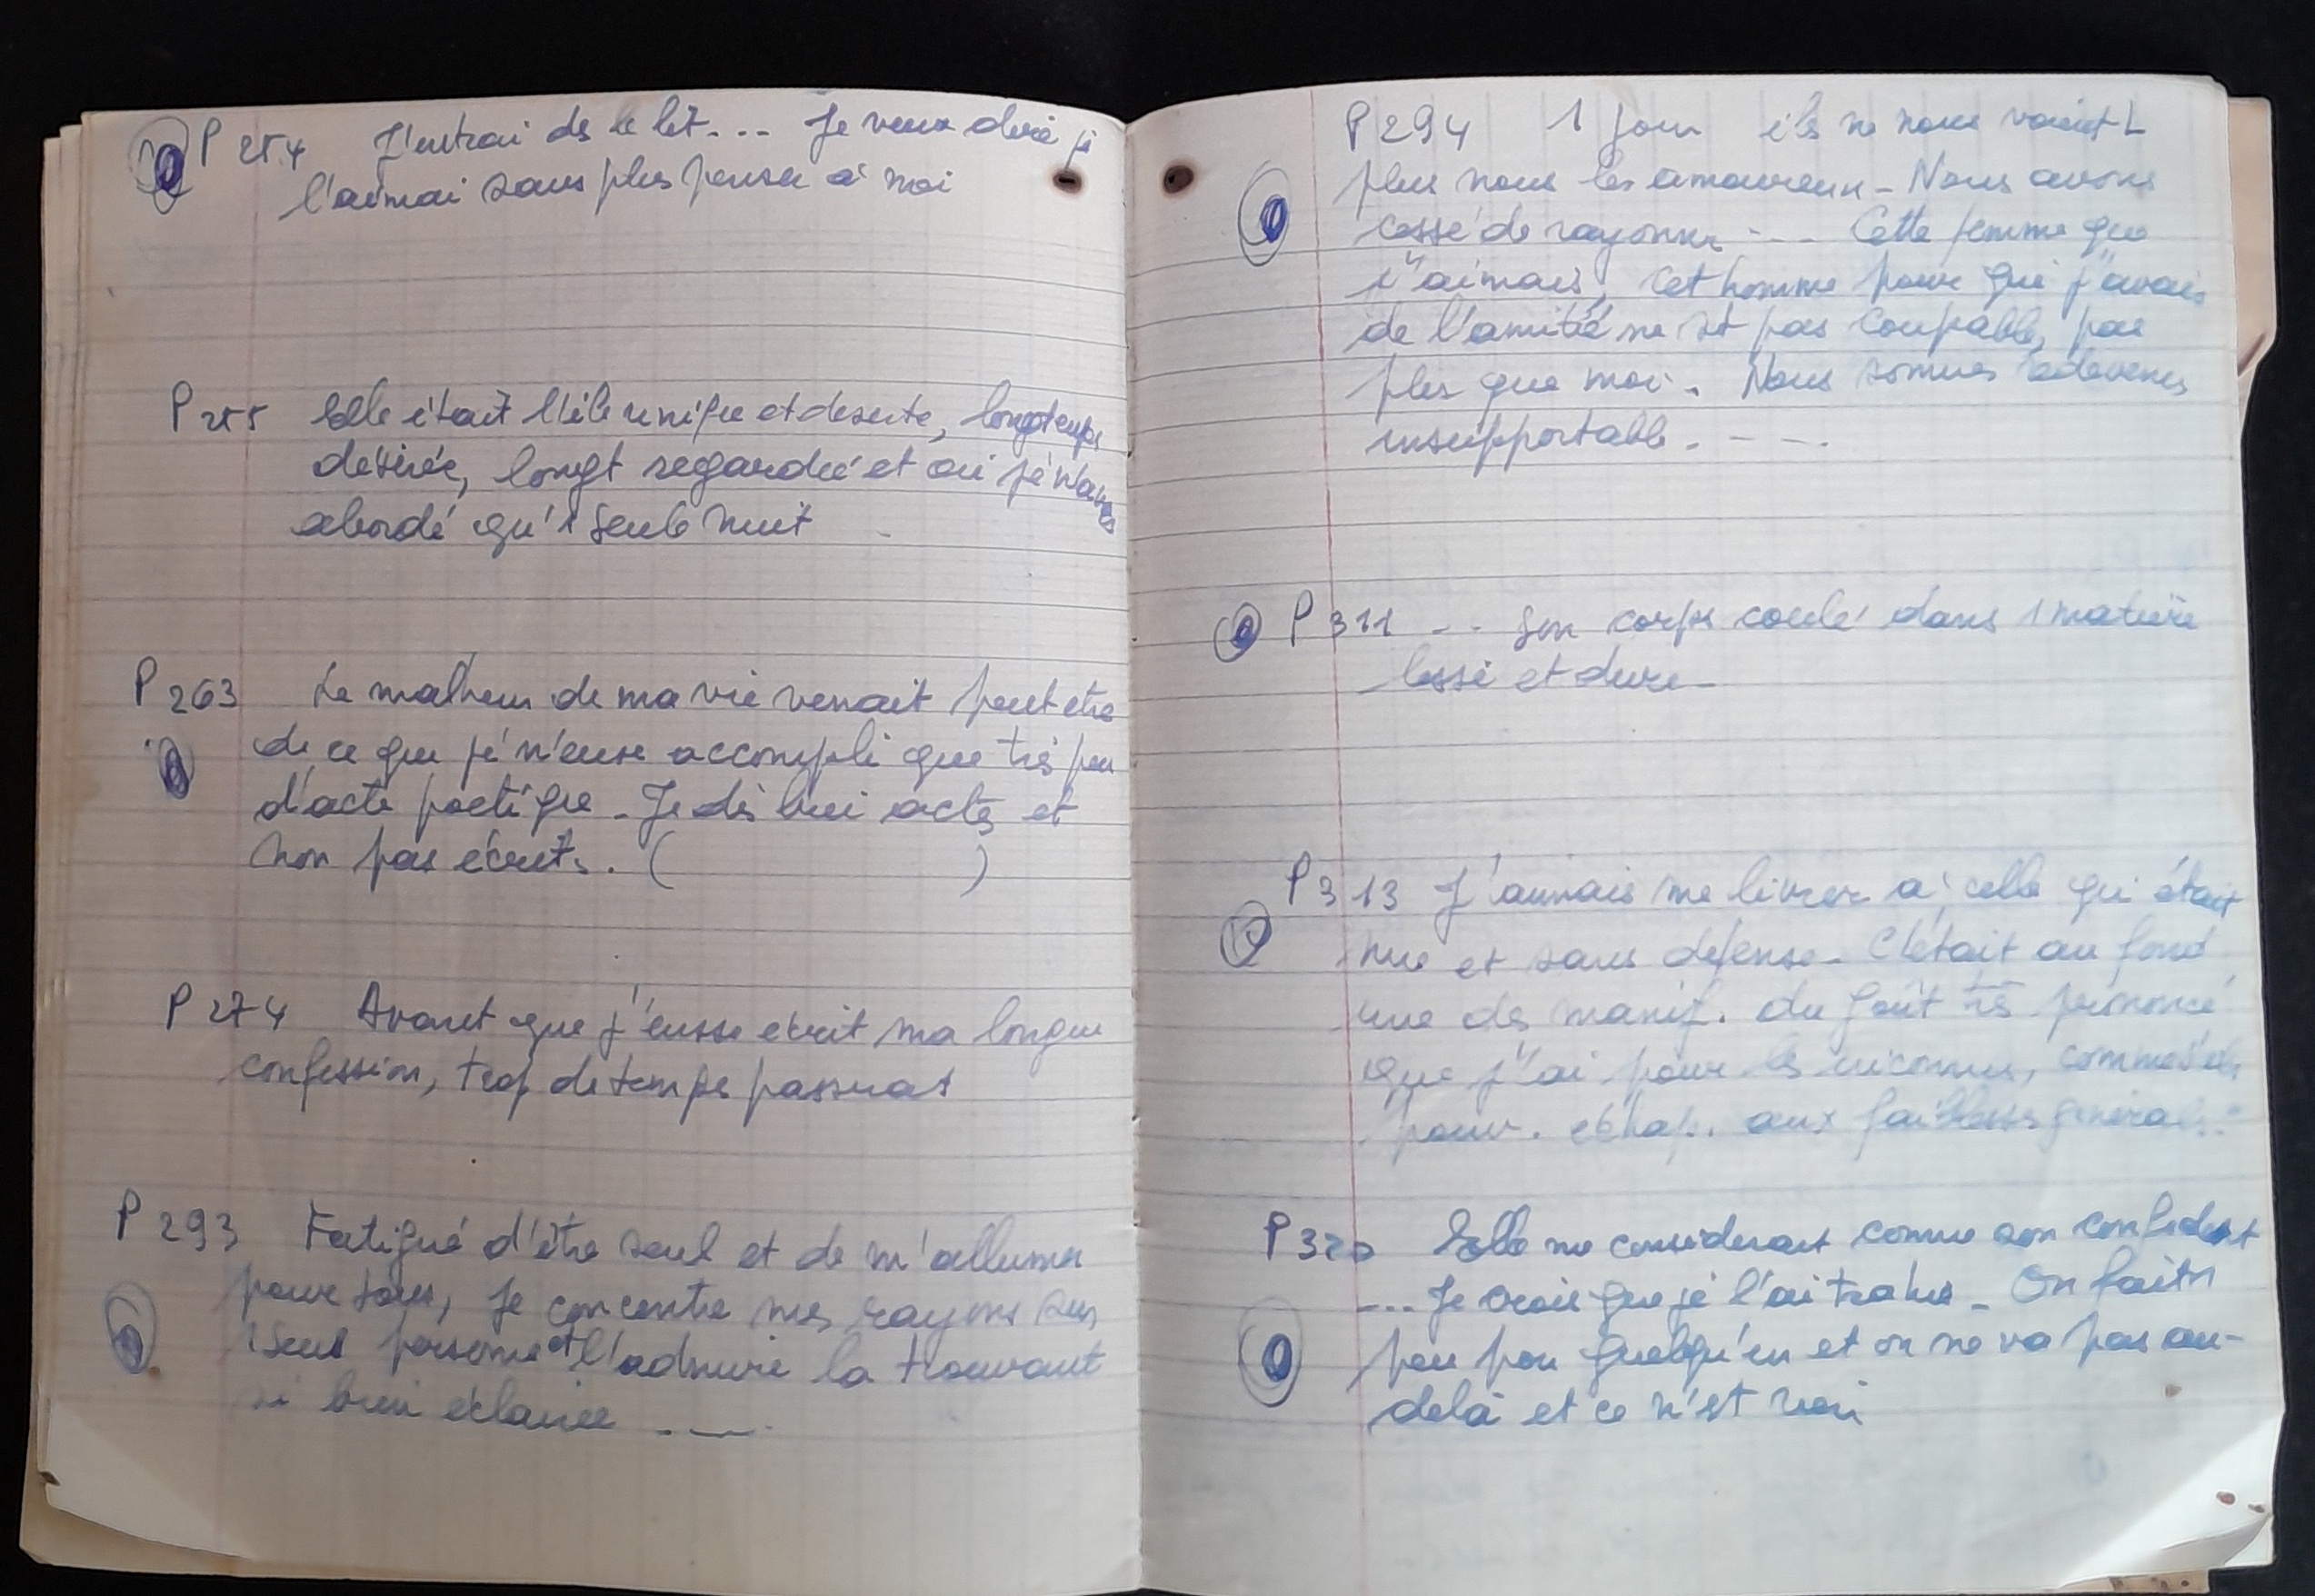 P 254 J'entrai ds le lit... Je veux dire je
l'aimai sans plus penser à moi
P 255 Elle était l'île unique et deserte, longtemps
désirée, longt regardée et où je n'avais
abordé qu'1 seule nuit
P 263 Le malheur de ma vie venait peut etre
de ce que je n'eusse accompli que très peu
d'acte poetique - Je dis bien actes et
non pas écrits. ( )
P 274 Avant que j'eusse écrit ma longue
confession, trop de temps passerat
P 293 Fatigué d'être seul et de m'allumer
pour tous, je concentre mes rayons sur
1 seul personne et l'admire la trouvant
si bien éclairée . __ .
P 294 1 jour ils ne nous voient
plus nous les amoureux - Nous avons
cessé de rayonner - - - Cette femme que
j'aimais, cet homme pour qui j'avais
de l'amitié ne st pas coupable, pas
plus que moi. Nous sommes redevenus
insupportable. - - -.
P 311 - - Son corps coulé dans 1 matière
lisse et dure -
P 313 J'aimais me livrer à celle qui était
nue et sans défense - C'était au fond
une des manif. du goût très prononcé
que j'ai pour les inconnus, comme s'ils
pouv. échap. aux faiblesses générales.
P 320 Elle me considerait comme son confident
.... Je crois que je l'ai trahie - On fait 1
peu pour quelqu'un et on ne va pas au-
delà et ce n'est rien